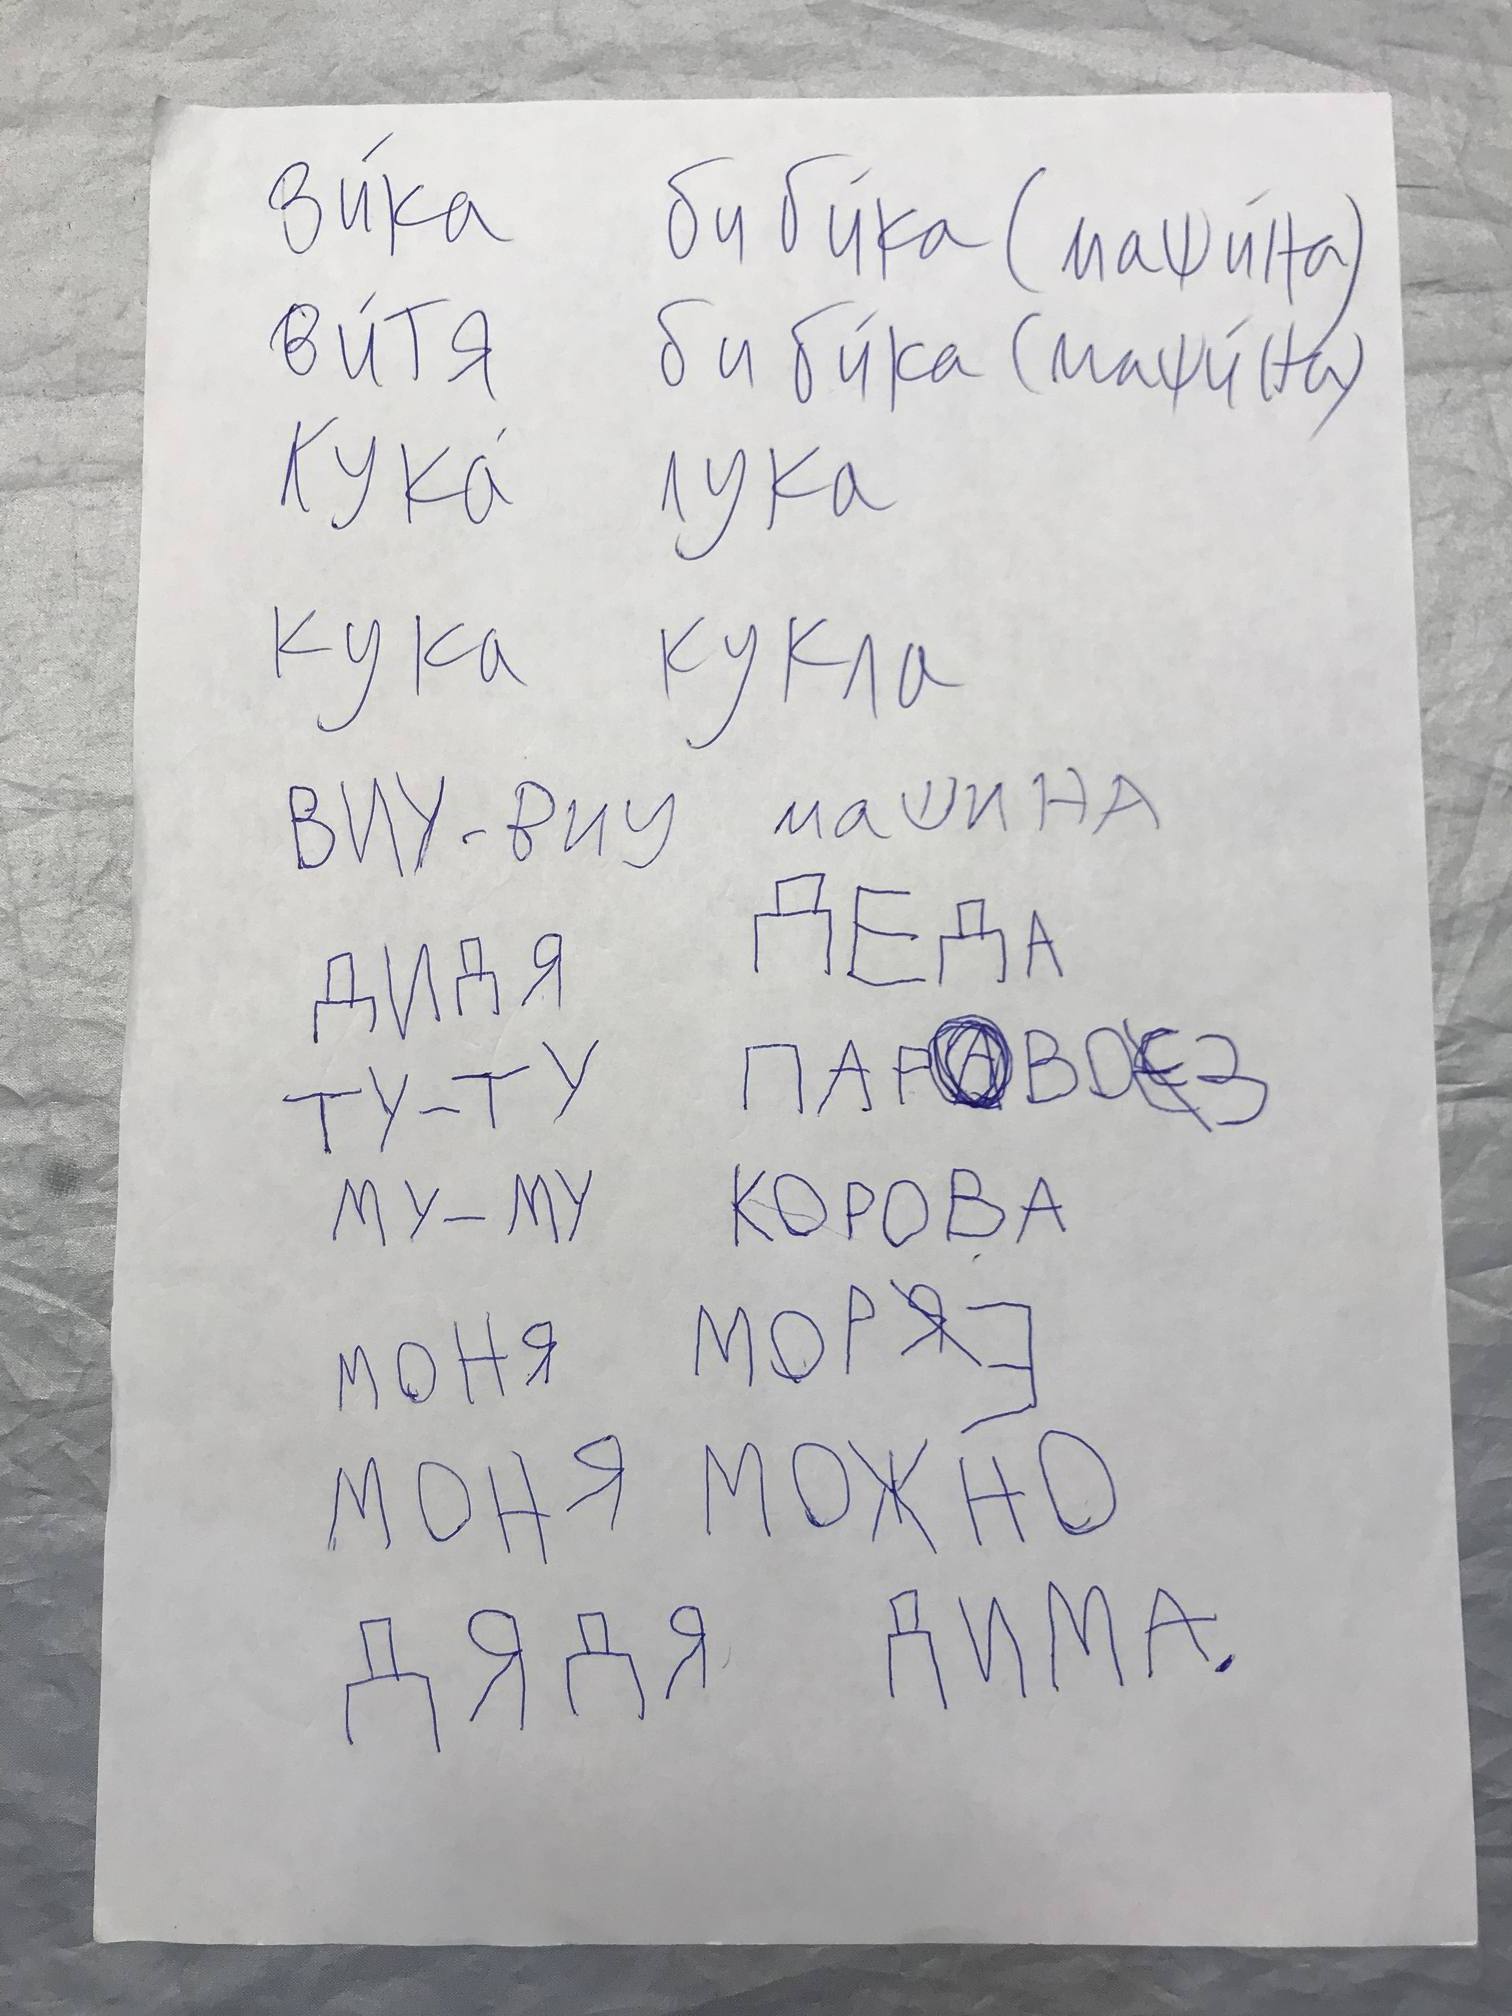 ви́ка биби́ка (маши́на)
ви́тя биби́ка (маши́на)
кука́ лука
кука кукла
ВИУ-виу машиНА
ДИДЯ ДЕДА
ТУ-ТУ ПАРОВОЗ
МУ-МУ КОРОВА
МОНЯ МОРЭ
МОНЯ МОЖНО
ДЯДЯ ДИМА.